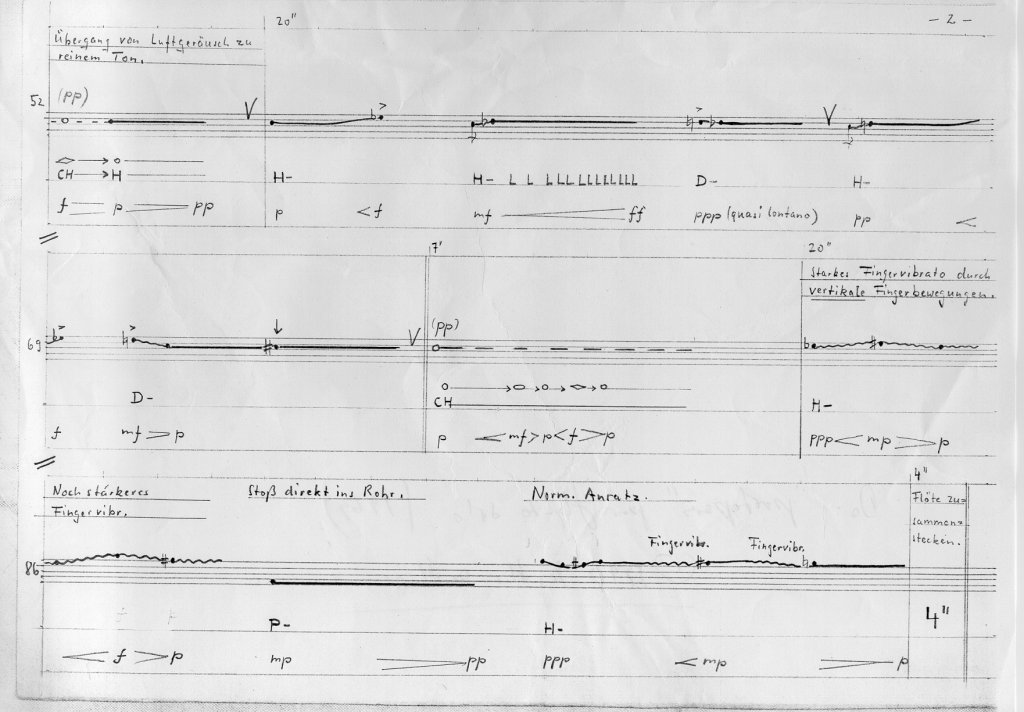 20"
- 2 -
Übergang von Luftgeräusch zu
reinem Ton.
52
(pp)
V
V
CH H
H-
H- L L LLLLLLLLLLL
D-
H-
f p pp
p < f
mf ff
ppp (quasi lontano)
pp <
7'
20"
starkes Fingervibrato durch
vertikale Fingerbewegungen.
69
V
(pp)
D-
CH
H-
f
mf > p
p < mf > p < f > p
ppp < mp > p
Noch stärkeres
Fingervibr.
Stoß direkt ins Rohr.
Norm. Ansatz.
4"
Flöte zu=
sammen=
stecken.
Fingervibr.
Fingervibr.
86
P-
H-
4"
< f > p
mp > pp
ppp < mp > p